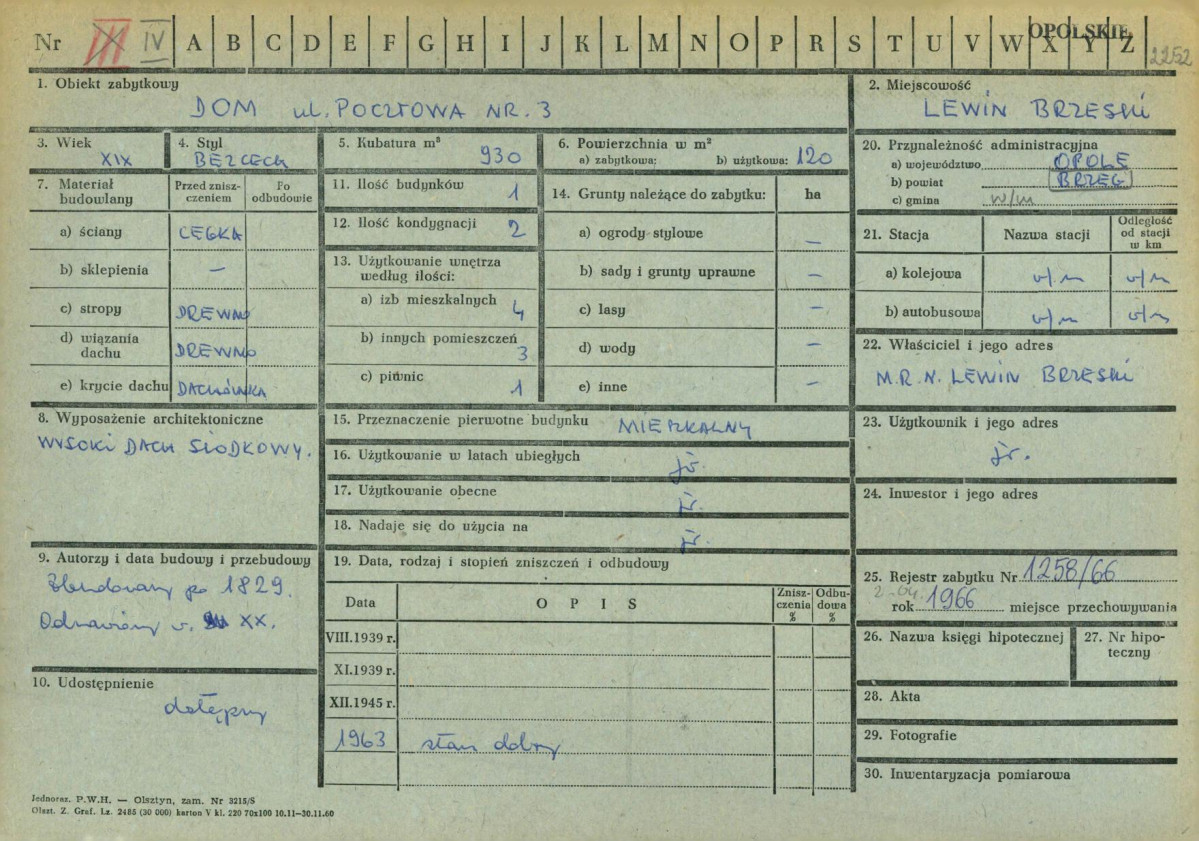 Nr III IV A B C D E F G H I J K L M N O P R S T U V W X Y Z OPOLSKIE 2252
1. Obiekt zabytkowy
DOM ul. POCZTOWA NR. 3
2. Miejscowość
LEWIN BRZESKI
3. Wiek
XIX
4. Styl
BEZCECH
5. Kubatura m³ 930
6. Powierzchnia w m²
a) zabytkowa: b) użytkowa: 120
20. Przynależność administracyjna
a) województwo OPOLE
b) powiat BRZEG
c) gmina w/m
7. Materiał budowlany
Przed zniszczeniem
Po odbudowie
a) ściany CEGŁA
b) sklepienia –
c) stropy DREWNO
d) wiązania dachu DREWNO
e) krycie dachu DACHÓWKA
11. Ilość budynków 1
12. Ilość kondygnacji 2
13. Użytkowanie wnętrza według ilości:
a) izb mieszkalnych 4
b) innych pomieszczeń 3
c) piwnic 1
14. Grunty należące do zabytku: ha
a) ogrody stylowe –
b) sady i grunty uprawne –
c) lasy –
d) wody –
e) inne –
21. Stacja
Nazwa stacji
Odległość od stacji w km
a) kolejowa w/m w/m
b) autobusowa w/m w/m
22. Właściciel i jego adres
M.R.N. LEWIN BRZESKI
8. Wyposażenie architektoniczne
WYSOKI DACH SIODŁOWY.
15. Przeznaczenie pierwotne budynku MIESZKALNY
16. Użytkowanie w latach ubiegłych jw.
17. Użytkowanie obecne jw.
18. Nadaje się do użycia na jw.
23. Użytkownik i jego adres
jw.
24. Inwestor i jego adres
9. Autorzy i data budowy i przebudowy
Zbudowany po 1829.
Odnawiany w. XX.
10. Udostępnienie
dostępny
19. Data, rodzaj i stopień zniszczeń i odbudowy
Data
OPIS
Zniszczenia %
Odbudowa %
VIII.1939 r.
XI.1939 r.
XII.1945 r.
1963 stan dobry
25. Rejestr zabytku Nr 1258/66
2.04.
rok 1966 miejsce przechowywania
26. Nazwa księgi hipotecznej
27. Nr hipoteczny
28. Akta
29. Fotografie
30. Inwentaryzacja pomiarowa
Jednoraz. P.W.H. — Olsztyn, zam. Nr 3215/S
Olszt. Z. Graf. Lz. 2485 (30 000) karton V kl. 220 70x100 10.11—30.11.60